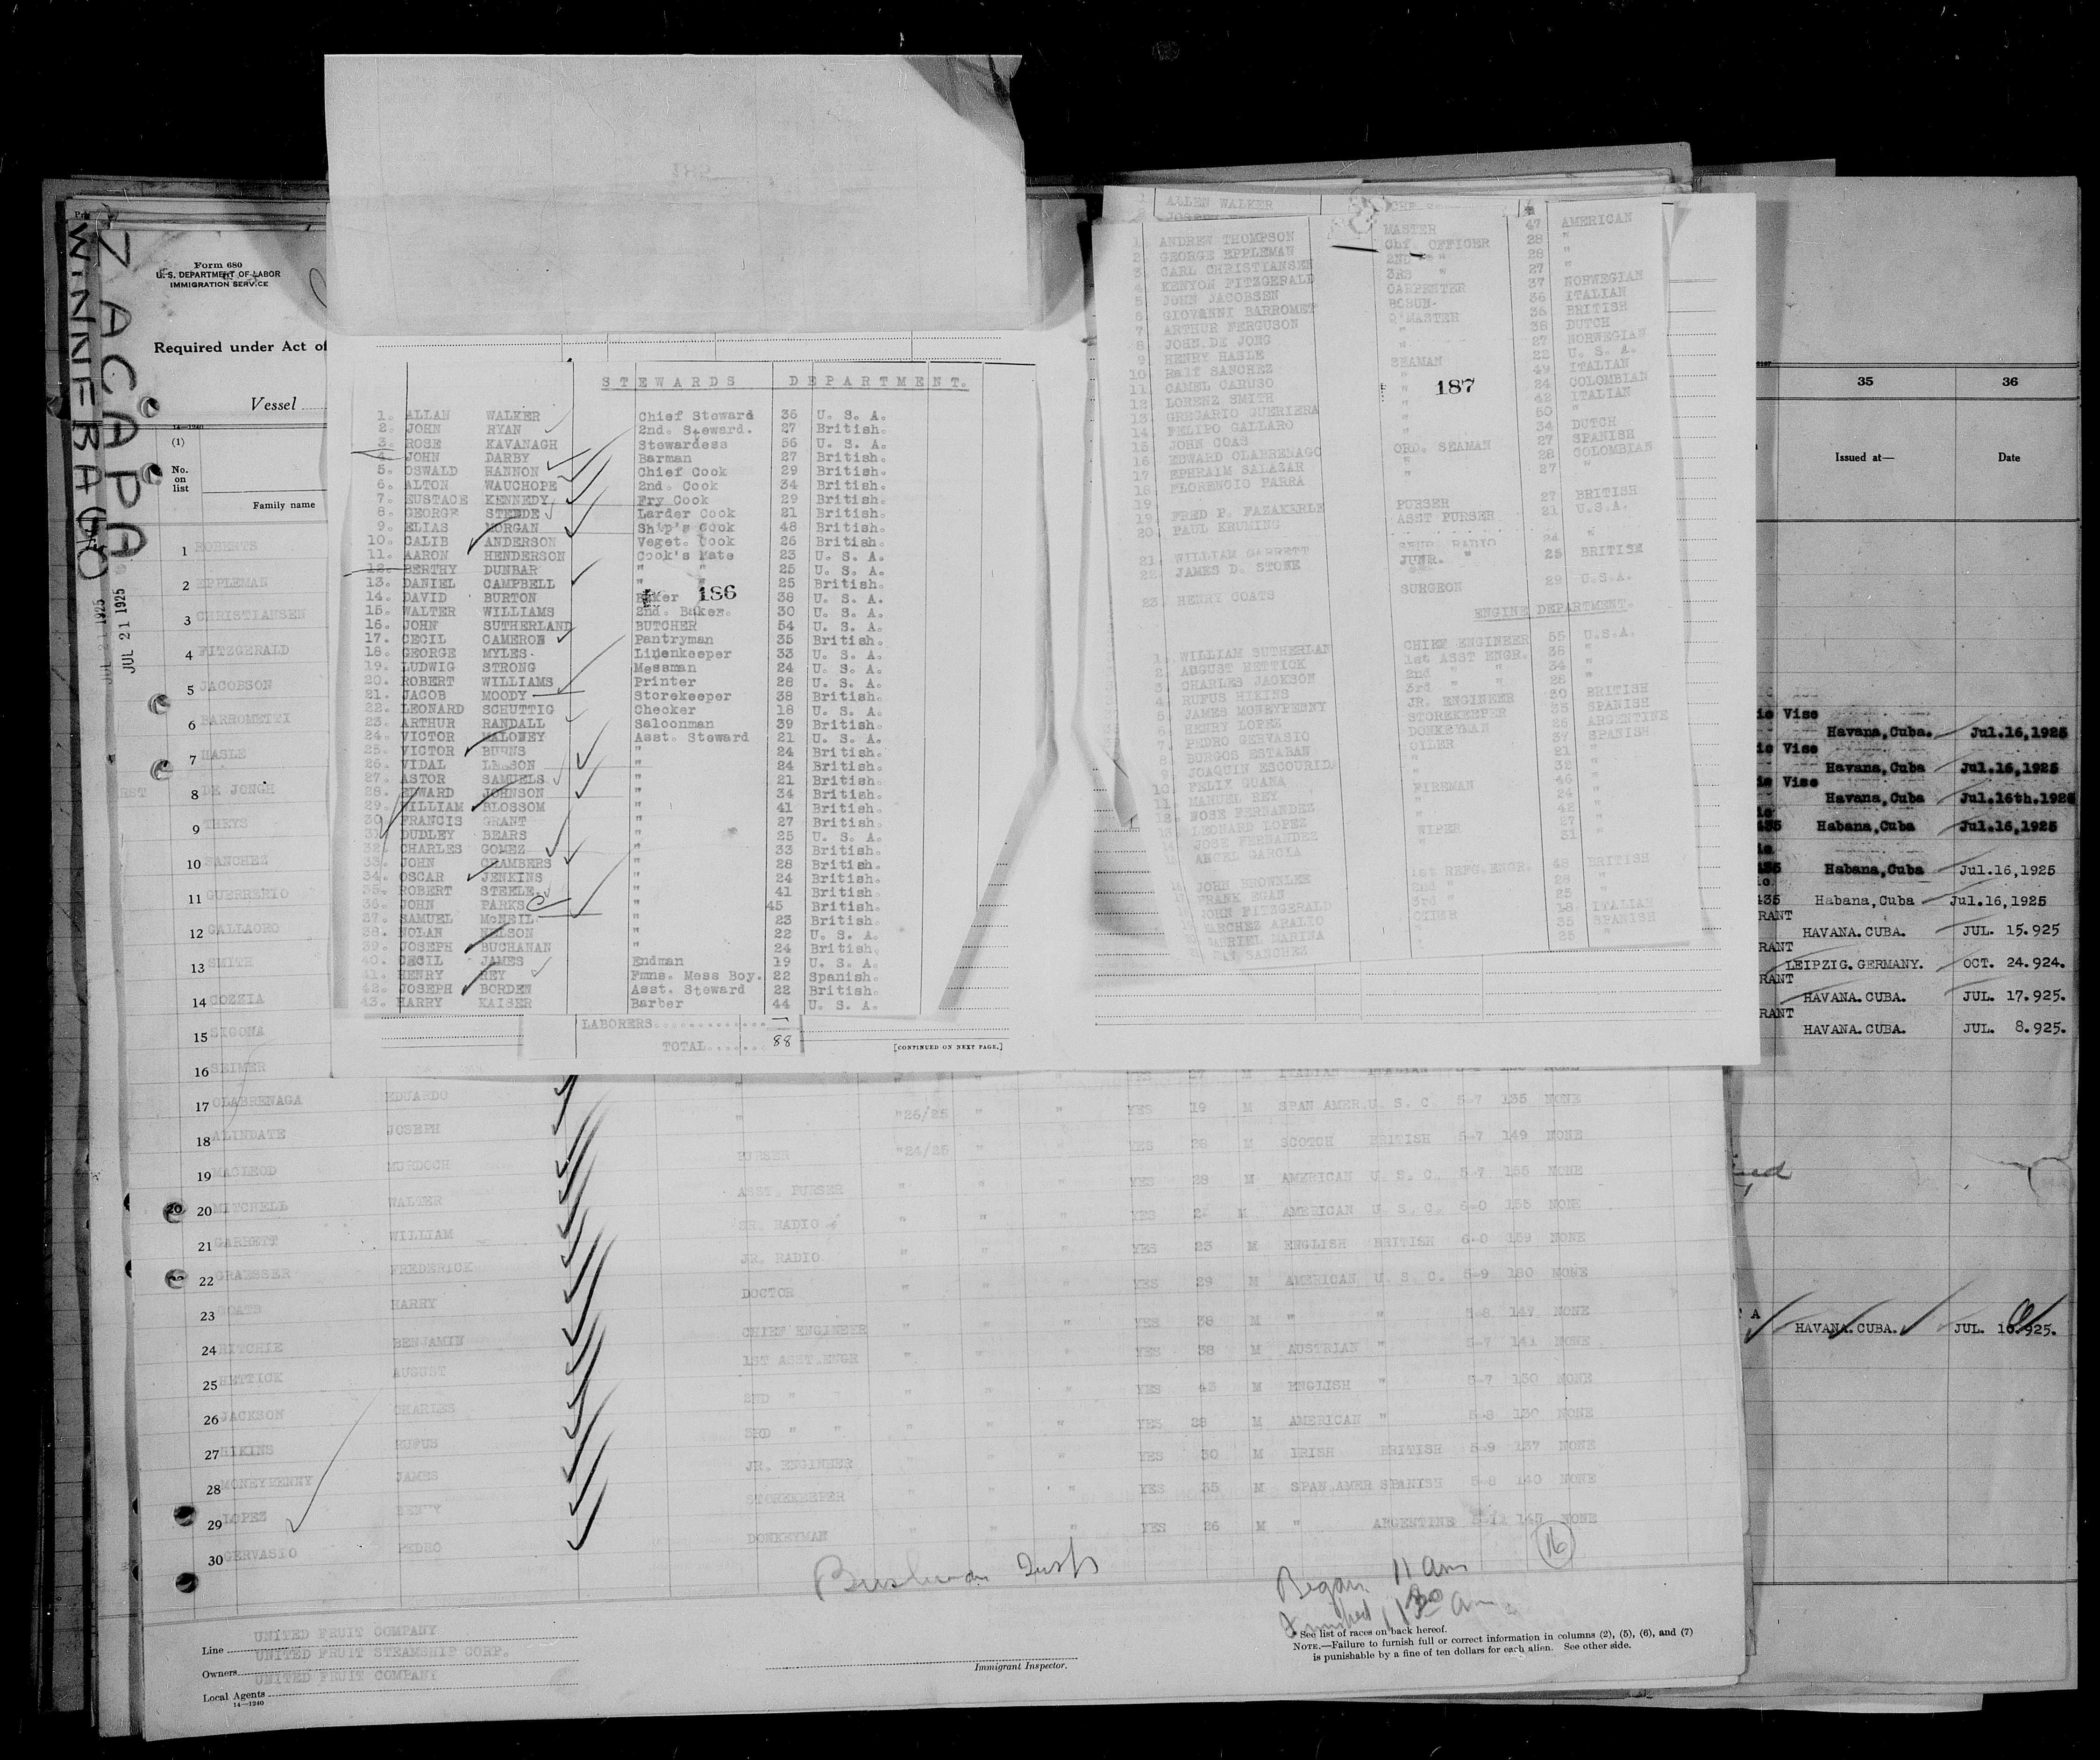 ZACAPA
WINNEBAGO
JUL 21 1925
JUL 21 1925
Form 680
U. S. DEPARTMENT OF LABOR
IMMIGRATION SERVICE
Required under Act of
Vessel
14—1240
(1)
No. on list
Family name
1 ROBERTS
2 EPPLEMAN
3 CHRISTIANSEN
4 FITZGERALD
5 JACOBSON
6 BARROMETTI
7 HASLE
8 DE JONGH
9 THEYS
10 SANCHEZ
11 GUERRERIO
12 GALLAORO
13 SMITH
14 COZZIA
15 SIGONA
16 SEIMER
STEWARDS DEPARTMENT.
1. ALLAN WALKER Chief Steward 36 U. S. A.
2. JOHN RYAN 2nd. Steward. 27 British.
3. ROSE KAVANAGH Stewardess 56 U. S. A.
4. JOHN DARBY Barman 27 British.
5. OSWALD HANNON Chief Cook 29 British.
6. ALTON WAUCHOPE 2nd. Cook 34 British.
7. EUSTACE KENNEDY Fry Cook 29 British.
8. GEORGE STEEDE Larder Cook 21 British.
9. ELIAS MORGAN Ship's Cook 48 British.
10. CALIB ANDERSON Veget. Cook 26 British.
11. AARON HENDERSON Cook's Mate 23 U. S. A.
12. BERTHY DUNBAR " " 25 U. S. A.
13. DANIEL CAMPBELL " " 25 British.
14. DAVID BURTON Baker 38 U. S. A.
186
15. WALTER WILLIAMS 2nd. Baker. 30 U. S. A.
16. JOHN SUTHERLAND BUTCHER 54 U. S. A.
17. CECIL CAMERON Pantryman 35 British.
18. GEORGE MYLES. Linenkeeper 33 U. S. A.
19. LUDWIG STRONG Messman 24 U. S. A.
20. ROBERT WILLIAMS Printer 28 U. S. A.
21. JACOB MOODY Storekeeper 38 British.
22. LEONARD SCHUTTIG Checker 18 U. S. A.
23. ARTHUR RANDALL Saloonman 39 British.
24. VICTOR MALONEY Asst. Steward 21 U. S. A.
25. VICTOR BURNS " 24 British.
26. VIDAL LESSON " 24 British.
27. ASTOR SAMUELS " 21 British.
28. EDWARD JOHNSON " 34 British.
29. WILLIAM BLOSSOM " 41 British.
30. FRANCIS GRANT " 27 British.
31. DUDLEY BEARS " 25 U. S. A.
32. CHARLES GOMEZ " 33 British.
33. JOHN CHAMBERS " 28 British.
34. OSCAR JENKINS " 24 British.
35. ROBERT STEELE " 41 British.
36. JOHN PARKS " 45 British.
37. SAMUEL McNEIL " 23 British.
38. NOLAN NELSON " 22 U. S. A.
39. JOSEPH BUCHANAN " 24 British.
40. CECIL JAMES Endman 19 U. S. A.
41. HENRY REY Fmns. Mess Boy. 22 Spanish.
42. JOSEPH BORDEN Asst. Steward 22 British.
43. HARRY KAISER Barber 44 U. S. A.
LABORERS
TOTAL 88
[CONTINUED ON NEXT PAGE.]
ALLEN WALKER
1 ANDREW THOMPSON MASTER 47 AMERICAN
2 GEORGE EPPLEMAN Chf. OFFICER 28 "
3 CARL CHRISTIANSEN 2ND " 28 "
4 KENYON FITZGERALD 3RD " 27 "
5 JOHN JACOBSEN CARPENTER 37 NORWEGIAN
6 GIOVANNI BARROMET BOSUN. 36 ITALIAN
7 ARTHUR FERGUSON Q'MASTER 36 BRITISH
8 JOHN DE JONG " 38 DUTCH
9 HENRY HASLE " 27 NORWEGIAN
10 Ralf SANCHEZ SEAMAN 22 U. S. A.
11 CAMEL CARUSO " 49 ITALIAN
12 LORENZ SMITH " 24 COLOMBIAN
187
13 GREGARIO GUERIERA " 42 ITALIAN
14 FELIPO GALLARO " 50 "
15 JOHN COAS " 34 DUTCH
16 EDWARD OLABRENAGO ORD. SEAMAN 27 SPANISH
17 EPHRAIM SALAZAR " 28 COLOMBIAN
18 FLORENCIO PARRA " 27 "
19
19 FRED P. FAZAKERLE PURSER 27 BRITISH
20 PAUL KRUMING ASST PURSER 21 U.S.A.
21 WILLIAM GARRETT SENR. RADIO 24 "
22 JAMES D. STONE JUNR. " 25 BRITISH
23 HENRY COATS SURGEON 29 U.S.A.
ENGINE DEPARTMENT.
1. WILLIAM SUTHERLAN CHIEF ENGINEER 55 U.S.A.
2. AUGUST HETTICK 1st ASST ENGR. 38 "
3. CHARLES JACKSON 2nd " " 34 "
4. RUFUS HIKINS 3rd " " 28 "
5. JAMES MONEYPENNY JR. ENGINEER 30 BRITISH
6. HENRY LOPEZ STOREKEEPER 35 SPANISH
7. PEDRO GERVASIO DONKEYMAN 26 ARGENTINE
8. BURGOS ESTABAN OILER 37 SPANISH
9. JOAQUIN ESCOURIDA " 21 "
10. FELIX GUANA " 32 "
11. MANUEL REY FIREMAN 46 "
12. NOSE FERNANDEZ " 24 "
13 LEONARD LOPEZ " 42 "
14 JOSE FERNANDEZ WIPER 27 "
15 ANGEL GARCIA " 31 "
JOHN BROWNLEE 1st REFG.ENGR. 48 BRITISH
FRANK EGAN 2nd " 28 "
JOHN FITZGERALD 3rd " 25 "
MARCHEZ ARALZO OILER 18 ITALIAN
GABRIEL MARINA 35 SPANISH
SANCHEZ 25 "
35 36
Issued at— Date
Vise
Havana,Cuba. Jul.16,1925
Vise
Havana,Cuba Jul.16,1925
Vise
Havana,Cuba Jul.16th.1925
Habana,Cuba Jul.16,1925
Habana,Cuba Jul.16,1925
Habana,Cuba Jul.16,1925
RANT
HAVANA.CUBA. JUL. 15.925
RANT
LEIPZIG.GERMANY. OCT. 24.924.
RANT
HAVANA.CUBA. JUL. 17.925.
RANT
HAVANA.CUBA. JUL. 8.925.
HAVANA.CUBA. JUL. 10.925.
17 OLABRENAGA EDUARDO " "26/25 " " YES 19 M SPAN AMER.U. S. C 5-7 135 NONE
18 ALINDATE JOSEPH "24/25 " " YES 28 M SCOTCH BRITISH 5-7 149 NONE
19 MACLEOD MURDOCH PURSER " " " YES 28 M AMERICAN U. S. C. 5-7 155 NONE
20 MITCHELL WALTER ASST. PURSER " " " YES M AMERICAN U. S. C. 6-0 155 NONE
21 GARRETT WILLIAM SR. RADIO " " " YES 23 M ENGLISH BRITISH 6-0 159 NONE
22 GRAESSER FREDERICK JR. RADIO " " " YES 29 M AMERICAN U. S. C. 5-9 180 NONE
23 COATS HARRY DOCTOR " " " YES 38 M " " 5-8 147 NONE
24 RITCHIE BENJAMIN CHIEF ENGINEER " " " YES 38 M AUSTRIAN " 5-7 141 NONE
25 HETTICK AUGUST 1ST ASST.ENGR " " " YES 43 M ENGLISH " 5-7 150 NONE
26 JACKSON CHARLES 2ND " " " " YES 28 M AMERICAN " 5-8 130 NONE
27 HIKINS RUFUS 3RD " " " " " YES 30 M IRISH BRITISH 5-9 137 NONE
28 MONEYPENNY JAMES JR. ENGINEER " " " YES 35 M SPAN.AMER SPANISH 5-8 140 NONE
29 LOPEZ HENRY STOREKEEPER " " " YES 26 M " ARGENTINE 145 NONE
30 GERVASIO PEDRO DONKEYMAN
16
Began 11 am
Finished 11 30 am
Line UNITED FRUIT COMPANY
Owners UNITED FRUIT STEAMSHIP CORP.
Local Agents UNITED FRUIT COMPANY
14—1240
Immigrant Inspector.
* See list of races on back hereof.
NOTE.—Failure to furnish full or correct information in columns (2), (5), (6), and (7)
is punishable by a fine of ten dollars for each alien. See other side.